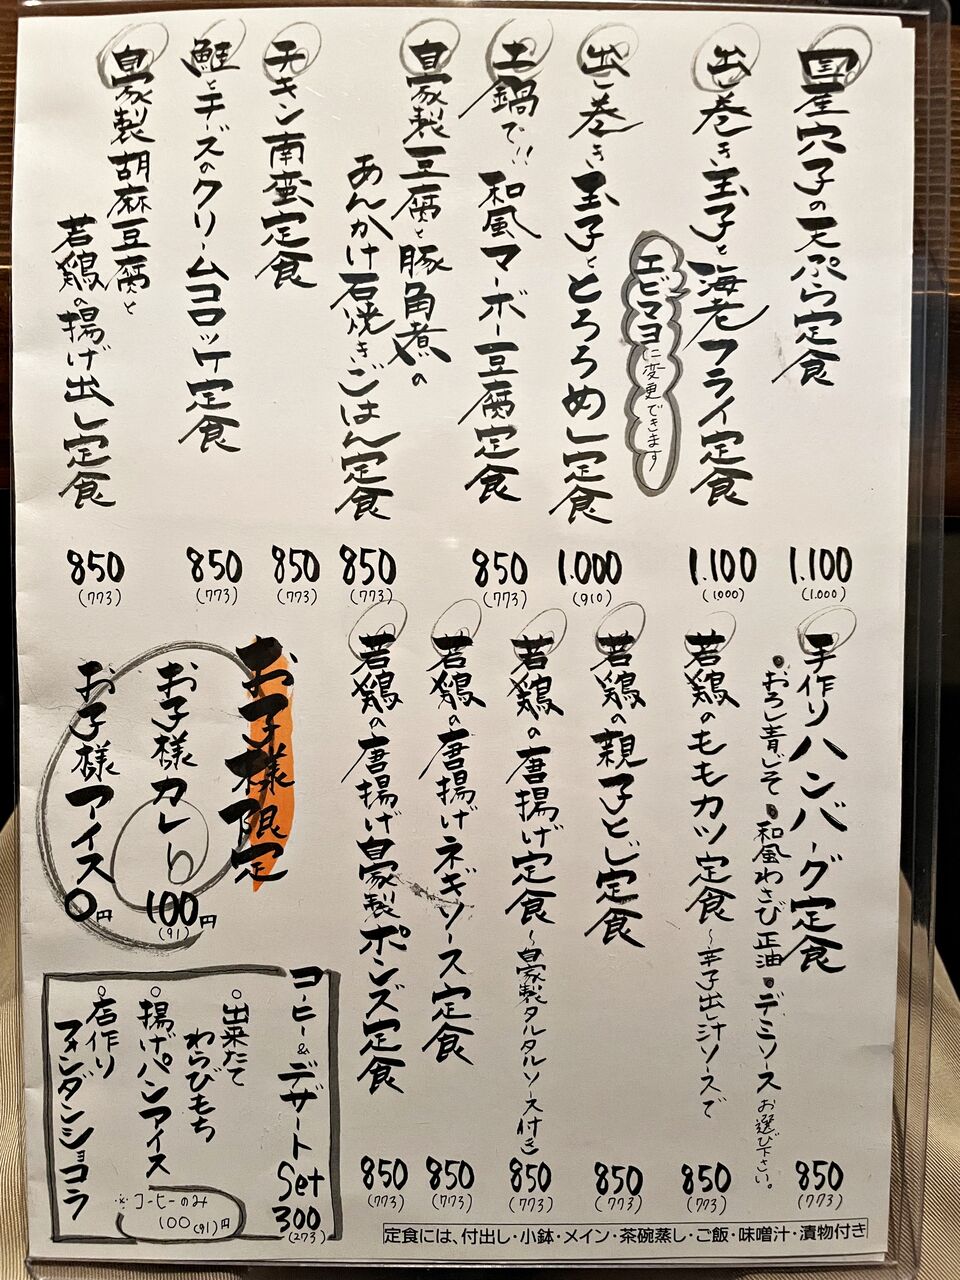 国産穴子の天ぷら定食
1.100
(1.000)
出し巻き玉子と海老フライ定食
エビマヨに変更できます
1.100
(1.000)
出し巻き玉子ととろろめし定食
1.000
(910)
土鍋で!!和風マーボー豆腐定食
850
(773)
自家製豆腐と豚角煮の
あんかけ石焼きごはん定食
850
(773)
チキン南蛮定食
850
(773)
鮭とチーズのクリームコロッケ定食
850
(773)
自家製胡麻豆腐と
若鶏の揚げ出し定食
850
(773)
手作りハンバーグ定食
•おろし青じそ •和風わさび正油 •デミソース お選び下さい。
850
(773)
若鶏のももカツ定食〜辛子出し汁ソースで
850
(773)
若鶏の親子とじ定食
850
(773)
若鶏の唐揚げ定食〜自家製タルタルソース付き
850
(773)
若鶏の唐揚げネギソース定食
850
(773)
若鶏の唐揚げ自家製ポンズ定食
850
(773)
お子様限定
お子様カレー
100円
(91)
お子様アイス
0円
コーヒー&デザートSet
300
(273)
○出来たて
わらびもち
○揚げパンアイス
○店作り
フォンダンショコラ
※コーヒーのみ
100(91)円
定食には、付出し・小鉢・メイン・茶碗蒸し・ご飯・味噌汁・漬物付き